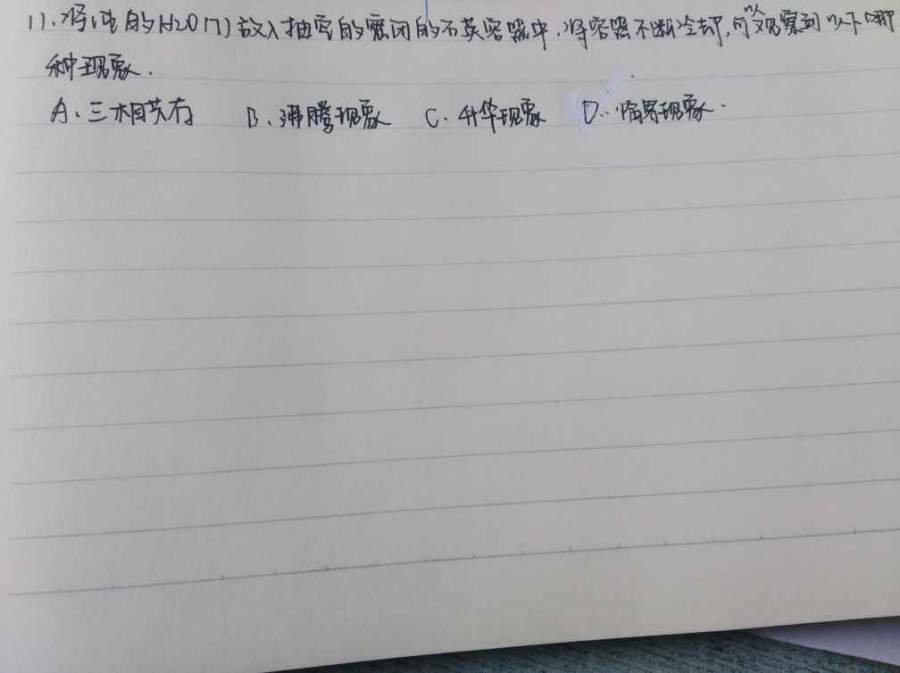 11.将纯的H2O(l)放入抽空的密闭的石英容器中,将容器不断冷却,可观察到以下哪
种现象.
A.三相共存 B.沸腾现象 C.升华现象 D.临界现象.